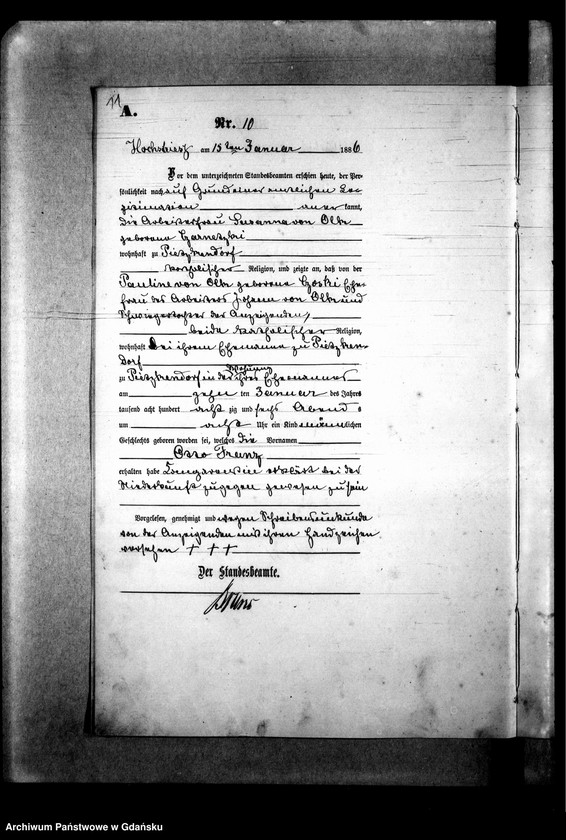 11
A.
Nr. 10
Hochstriess am 15ten Januar 1886
Vor dem unterzeichneten Standesbeamten erschien heute, der Per-
sönlichkeit nach auf Grund einer amtlichen Le-
gitimation anerkannt,
die Arbeiterfrau Susanna von Olbe
geborene Czarnetzki
wohnhaft zu Pietzkendorf
katholischer Religion, und zeigte an, daß von der
Pauline von Olbe geborene Goski Ehe-
frau des Arbeiters Johann von Olbe und
Schwiegertochter der Anzeigenden,
beide katholischer Religion,
wohnhaft bei ihrem Ehemanne zu Pietzken-
dorf
zu Pietzkendorf in der Wohnung ihres Ehemannes
am zehnten Januar des Jahres
tausend acht hundert achtzig und sechs Abends
um acht Uhr ein Kind männlichen
Geschlechts geboren worden sei, welches die Vornamen
Otto Franz
erhalten habe. erklärt bei der
Niederkunft zugegen gewesen zu sein
Vorgelesen, genehmigt und wegen Schreibensunkunde
von der Anzeigenden mit ihren Handzeichen
versehen + + +
Der Standesbeamte.
Archiwum Państwowe w Gdańsku